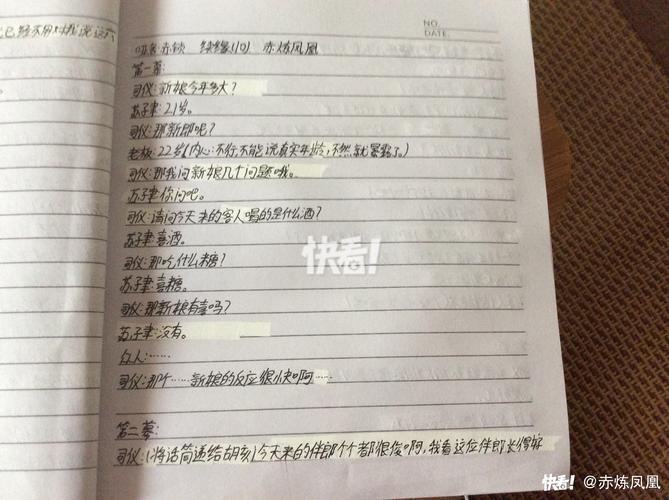 已经不用对我说这六
NO.
DATE.
吸客赤锁 续缘(10) 赤炼凤凰
第一幕:
司仪:新娘今年多大?
苏子聿:21岁。
司仪:那新郎呢?
老板:22岁(内心:不行,不能说真实年龄,不然就暴露了。)
司仪:那我问新娘几个问题哦。
苏子聿:你问吧。
司仪:请问今天来的客人喝的是什么酒?
苏子聿:喜酒。
司仪:那吃什么糖?
苏子聿:喜糖。
司仪:那新娘有喜吗?
苏子聿:没有。
众人:……
司仪:那个……新娘的反应很快啊……
第二幕:
司仪:(将话筒递给胡亥)今天来的伴郎个个都很俊啊,我看这位伴郎长得好
快看!
快看! @赤炼凤凰